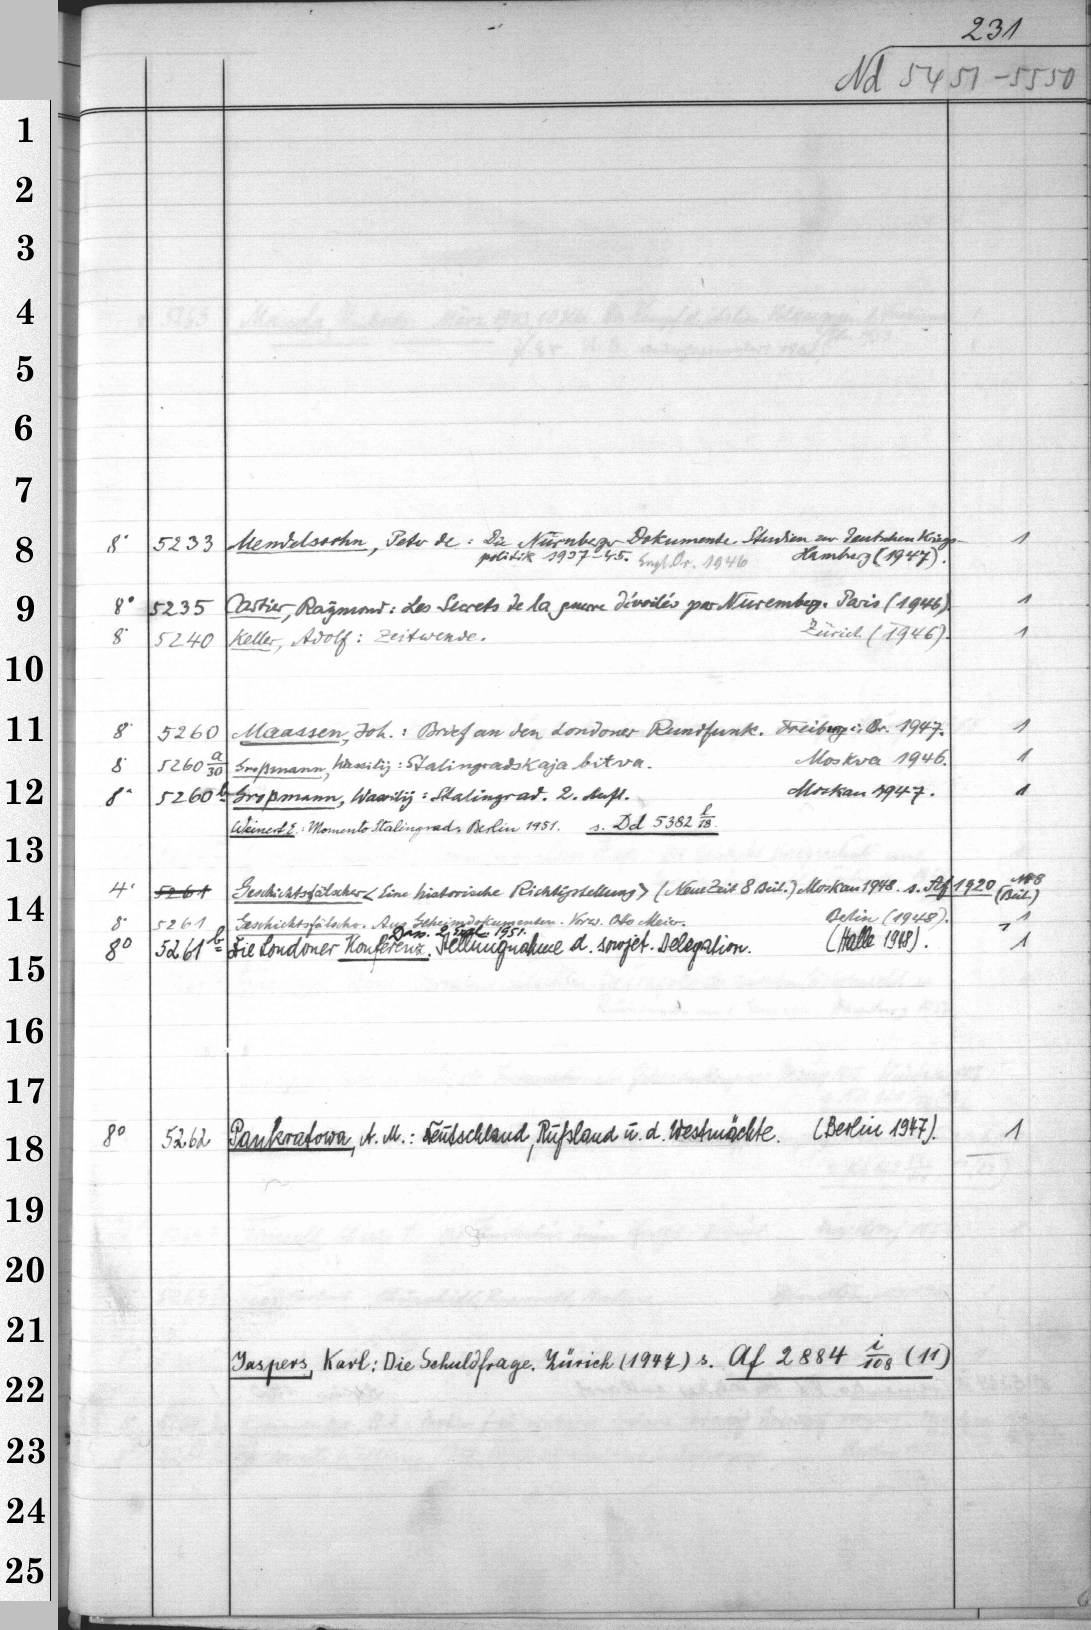 231
Nd 5451-5550
1
2
3
4
5
6
7
8
9
10
11
12
13
14
15
16
17
18
19
20
21
22
23
24
25
8° 5233 Mendelssohn, Peter de: Die Nürnberger Dokumente. Studien zur deutschen Kriegs- 1
politik 1937-45. Engl. Or. 1946 Hamburg (1947).
8° 5235 Cartier, Raymond: Les Secrets de la guerre dévoilés par Nuremberg. Paris (1946) 1
8° 5240 Keller, Adolf: Zeitwende. Zürich (1946). 1
8° 5260 Maassen, Joh.: Brief an den Londoner Rundfunk. Freiburg i. Br. 1947. 1
8° 5260 a/30 Großmann, Wassilij: Stalingradskaja bitva. Moskva 1946. 1
8° 5260 b Großmann, Wassilij: Stalingrad. 2. Aufl. Moskau 1947. 1
Weinert E.: Memento Stalingrad. Berlin 1951. s. Dd 5382 f/18.
4° 5261 Geschichtsfälscher <Eine historische Richtigstellung> (Neue Zeit 8 Beil.) Moskau 1948. s. Af 1920 1948 (Beil.)
8° 5261 Geschichtsfälscher. Aus Geheimdokumenten. Vorw. Otto Meier. Berlin (1948). 1
Dass. 2. 1951.
8° 5261 b Die Londoner Konferenz. Stellungnahme d. sowjet. Delegation. (Halle 1948). 1
8° 5262 Pankratowa, A. M.: Deutschland, Rußland u. d. Westmächte. (Berlin 1947). 1
Jaspers, Karl: Die Schuldfrage. Zürich (1947) s. Af 2884 i/108 (11)